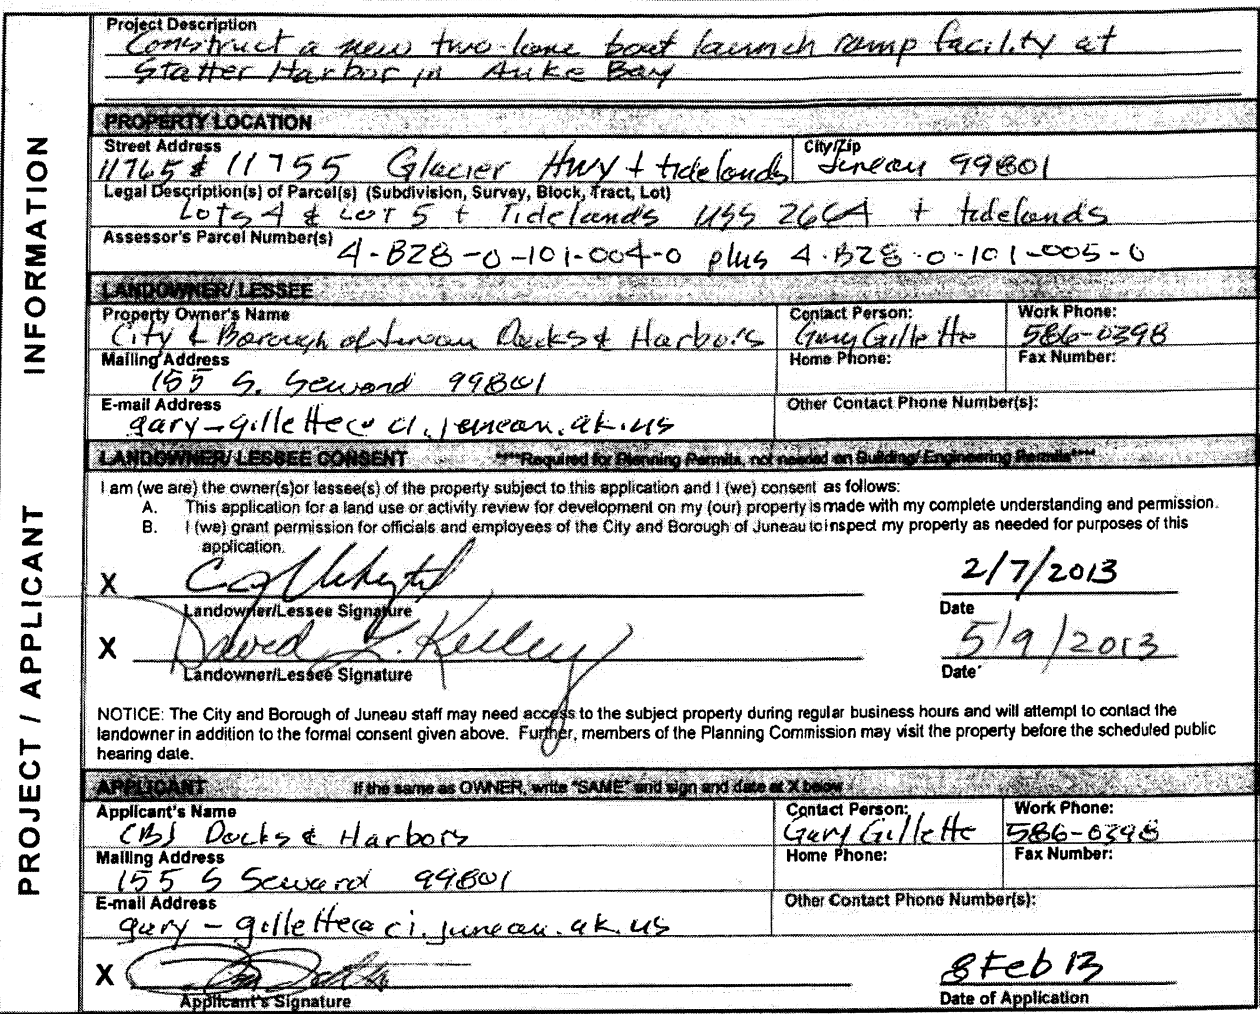 PROJECT / APPLICANT INFORMATION
Project Description
Construct a new two-lane boat launch ramp facility at
Statter Harbor in Auke Bay
PROPERTY LOCATION
Street Address City/Zip
11765 & 11755 Glacier Hwy + tidelands Juneau 99801
Legal Description(s) of Parcel(s) (Subdivision, Survey, Block, Tract, Lot)
Lots 4 & Lot 5 + Tidelands USS 2664 + tidelands
Assessor's Parcel Number(s)
4-B28-0-101-004-0 plus 4-B28-0-101-005-0
LANDOWNER/ LESSEE
Property Owner's Name Contact Person: Work Phone:
City & Borough of Juneau Docks & Harbors Gary Gillette 586-0398
Mailing Address Home Phone: Fax Number:
155 S. Seward 99801
E-mail Address Other Contact Phone Number(s):
gary-gillette@ci.juneau.ak.us
LANDOWNER/ LESSEE CONSENT ****Required for Planning Permits, not needed on Building/ Engineering Permits****
I am (we are) the owner(s)or lessee(s) of the property subject to this application and I (we) consent as follows:
A. This application for a land use or activity review for development on my (our) property is made with my complete understanding and permission.
B. I (we) grant permission for officials and employees of the City and Borough of Juneau to inspect my property as needed for purposes of this
application.
X 2/7/2013
Landowner/Lessee Signature Date
X David L. Kelley 5/9/2013
Landowner/Lessee Signature Date
NOTICE: The City and Borough of Juneau staff may need access to the subject property during regular business hours and will attempt to contact the
landowner in addition to the formal consent given above. Further, members of the Planning Commission may visit the property before the scheduled public
hearing date.
APPLICANT If the same as OWNER, write "SAME" and sign and date at X below
Applicant's Name Contact Person: Work Phone:
CBJ Docks & Harbors Gary Gillette 586-0398
Mailing Address Home Phone: Fax Number:
155 S Seward 99801
E-mail Address Other Contact Phone Number(s):
gary-gillette@ci.juneau.ak.us
X 8 Feb 13
Applicant's Signature Date of Application